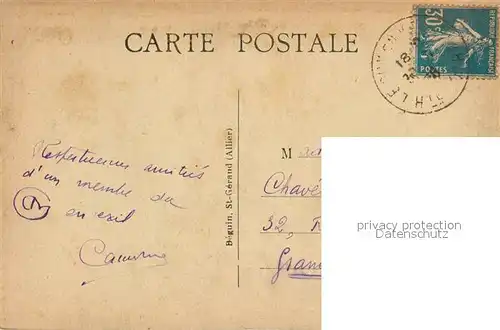 CARTE POSTALE
30c
POSTES
Respectueuses amitiés
d'un membre du
en exil
Béguin, St-Gérand (Allier)
M
Chavé
32, R
Gran
privacy protection
Datenschutz